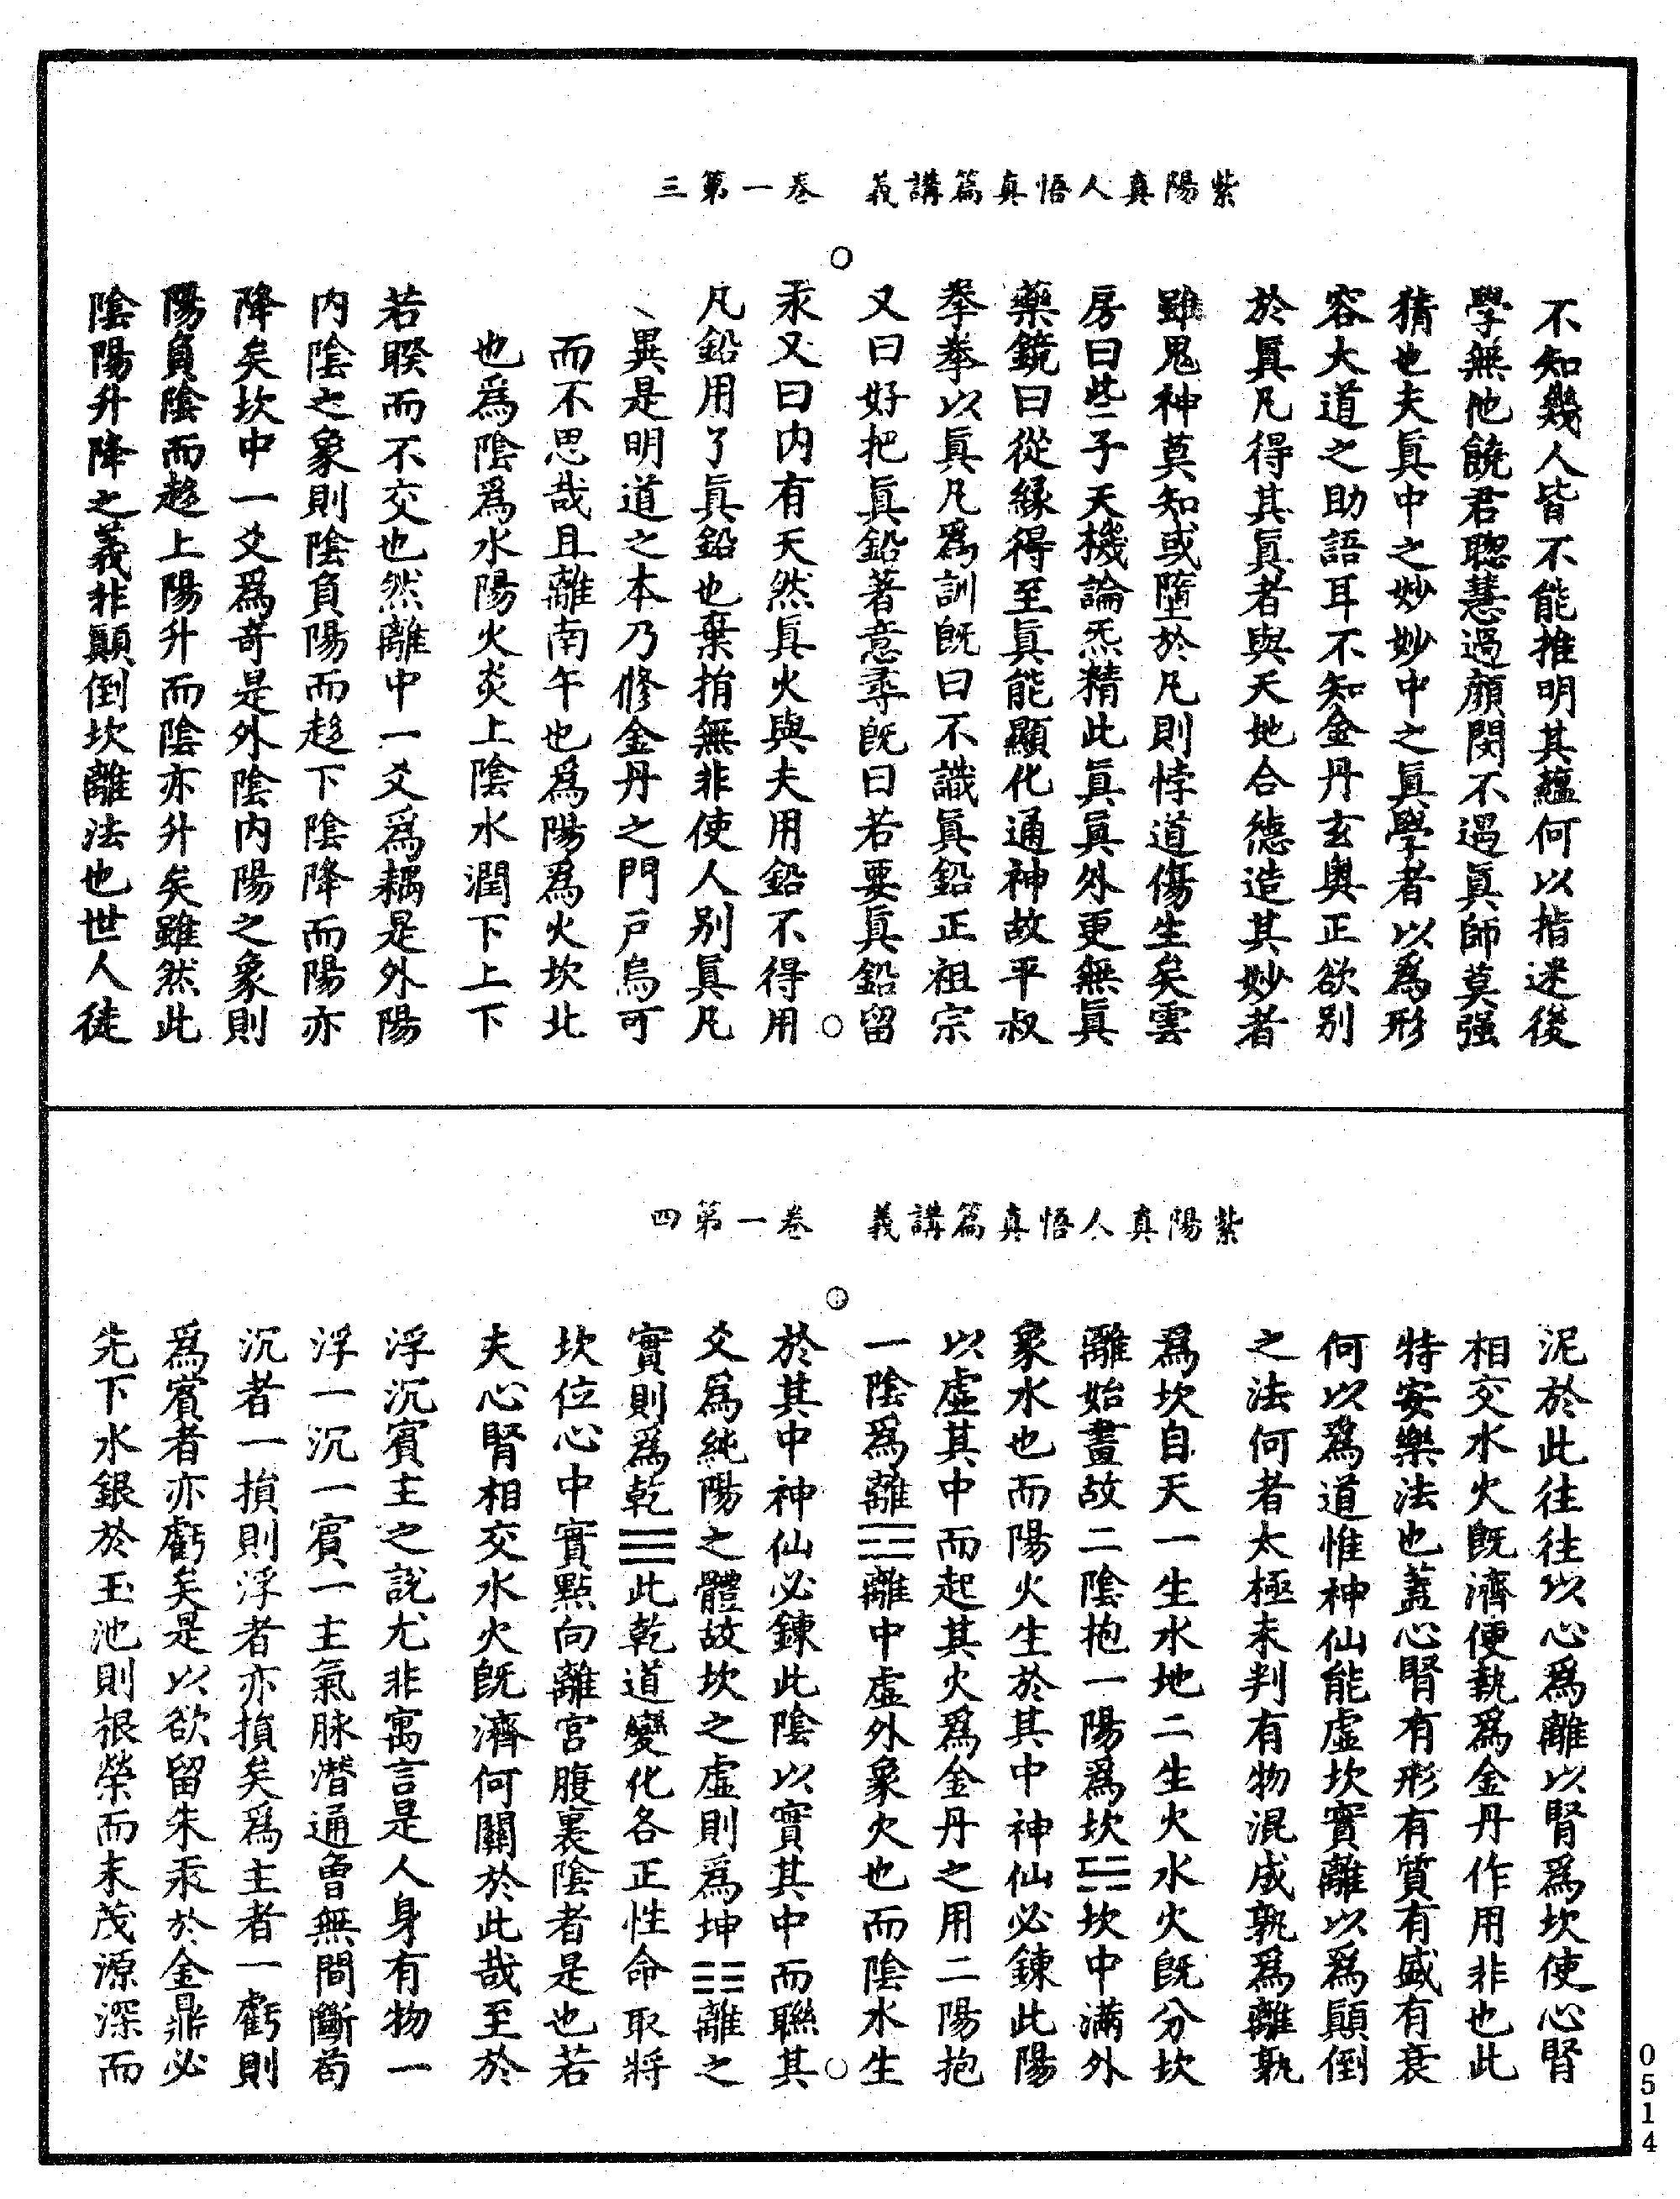 紫陽真人悟真篇講義　卷一第三
不知幾人皆不能推明其蘊何以指迷後
學無他饒君聰慧過顏閔不遇眞師莫强
猜也夫眞中之妙妙中之眞學者以爲形
容大道之助語耳不知金丹玄奥正欲别
於眞凡得其眞者與天地合德造其妙者
雖鬼神莫知或墮於凡則悖道傷生矣雲
房曰些子天機論炁精此眞眞外更無眞
藥鏡曰從緣得至眞能顯化通神故平叔
拳拳以眞凡爲訓旣曰不識眞鉛正祖宗
又曰好把眞鉛著意尋旣曰若要眞鉛留
汞又曰内有天然眞火與夫用鉛不得用
凡鉛用了眞鉛也棄捐無非使人别眞凡
異是明道之本乃修金丹之門戸烏可
而不思哉且離南午也爲陽爲火坎北
也爲陰爲水陽火炎上陰水潤下上下
若睽而不交也然離中一爻爲耦是外陽
内陰之象則陰負陽而趍下陰降而陽亦
降矣坎中一爻爲竒是外陰内陽之象則
陽負陰而趍上陽升而陰亦升矣雖然此
陰陽升降之義非顚倒坎離法也世人徒
紫陽真人悟真篇講義　卷一第四
泥於此往往以心爲離以腎爲坎使心腎
相交水火旣濟便執爲金丹作用非也此
特安樂法也蓋心腎有形有質有盛有衰
何以爲道惟神仙能虛坎實離以爲顚倒
之法何者太極未判有物混成孰爲離孰
爲坎自天一生水地二生火水火旣分坎
離始畫故二陰抱一陽爲坎☵坎中滿外
象水也而陽火生於其中神仙必鍊此陽
以虛其中而起其火爲金丹之用二陽抱
一陰爲離☲離中虛外象火也而陰水生
於其中神仙必鍊此陰以實其中而聯其
爻爲純陽之體故坎之虛則爲坤☷離之
實則爲乾☰此乾道變化各正性命取將
坎位心中實點向離宮腹裏陰者是也若
夫心腎相交水火旣濟何關於此哉至於
浮沉賓主之說尤非寓言是人身有物一
浮一沉一賓一主氣脉潛通曾無間斷苟
沉者一損則浮者亦損矣爲主者一虧則
爲賓者亦虧矣是以欲留朱汞於金鼎必
先下水銀於玉池則根榮而末茂源深而
0514